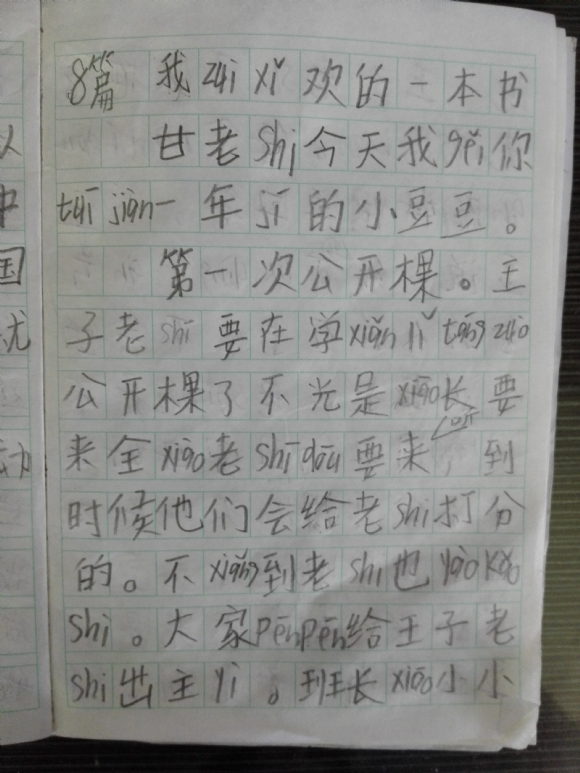 8篇 我 zuì xǐ 欢的一本书
甘老 shī 今天我 gěi 你
tuī jiàn 一年 jí 的小豆豆。
第一次公开棵。王
子老 shī 要在学 xiàn lǐ táng zuò
公开棵了不光是 xiào 长要
来全 xiào 老 shī dōu 要来，到
时候他们会给老 shī 打分
的。不 xiǎng 到老 shī 也 yào kǎo
shì。大家 pēn pēn 给王子老
shī 出主 yì。班长 xiǎo 小小
国
中
尤
动